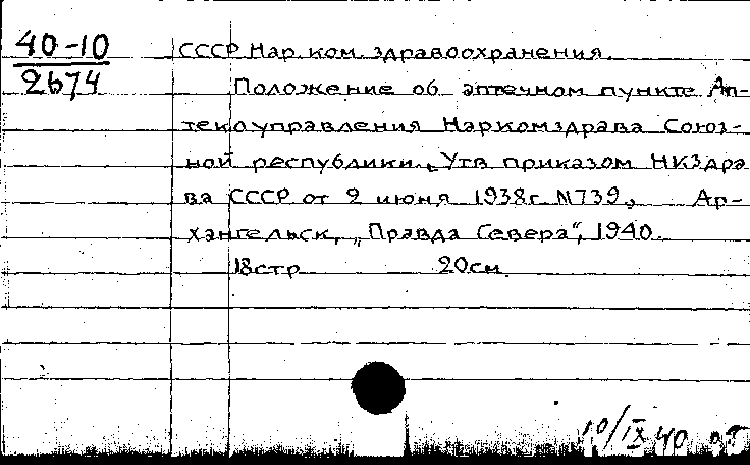 40-10
2674
СССР Нар. ком. здравоохранения.
Положение об аптечном пункте Ап-
текоуправления Наркомздрава Союз-
ной республики. Утв приказом НКЗдра
ва СССР от 9 июня 1938г. N739, Ар-
хангельск, „Правда Севера“, 1940.
18стр 20см.
10/IX 40